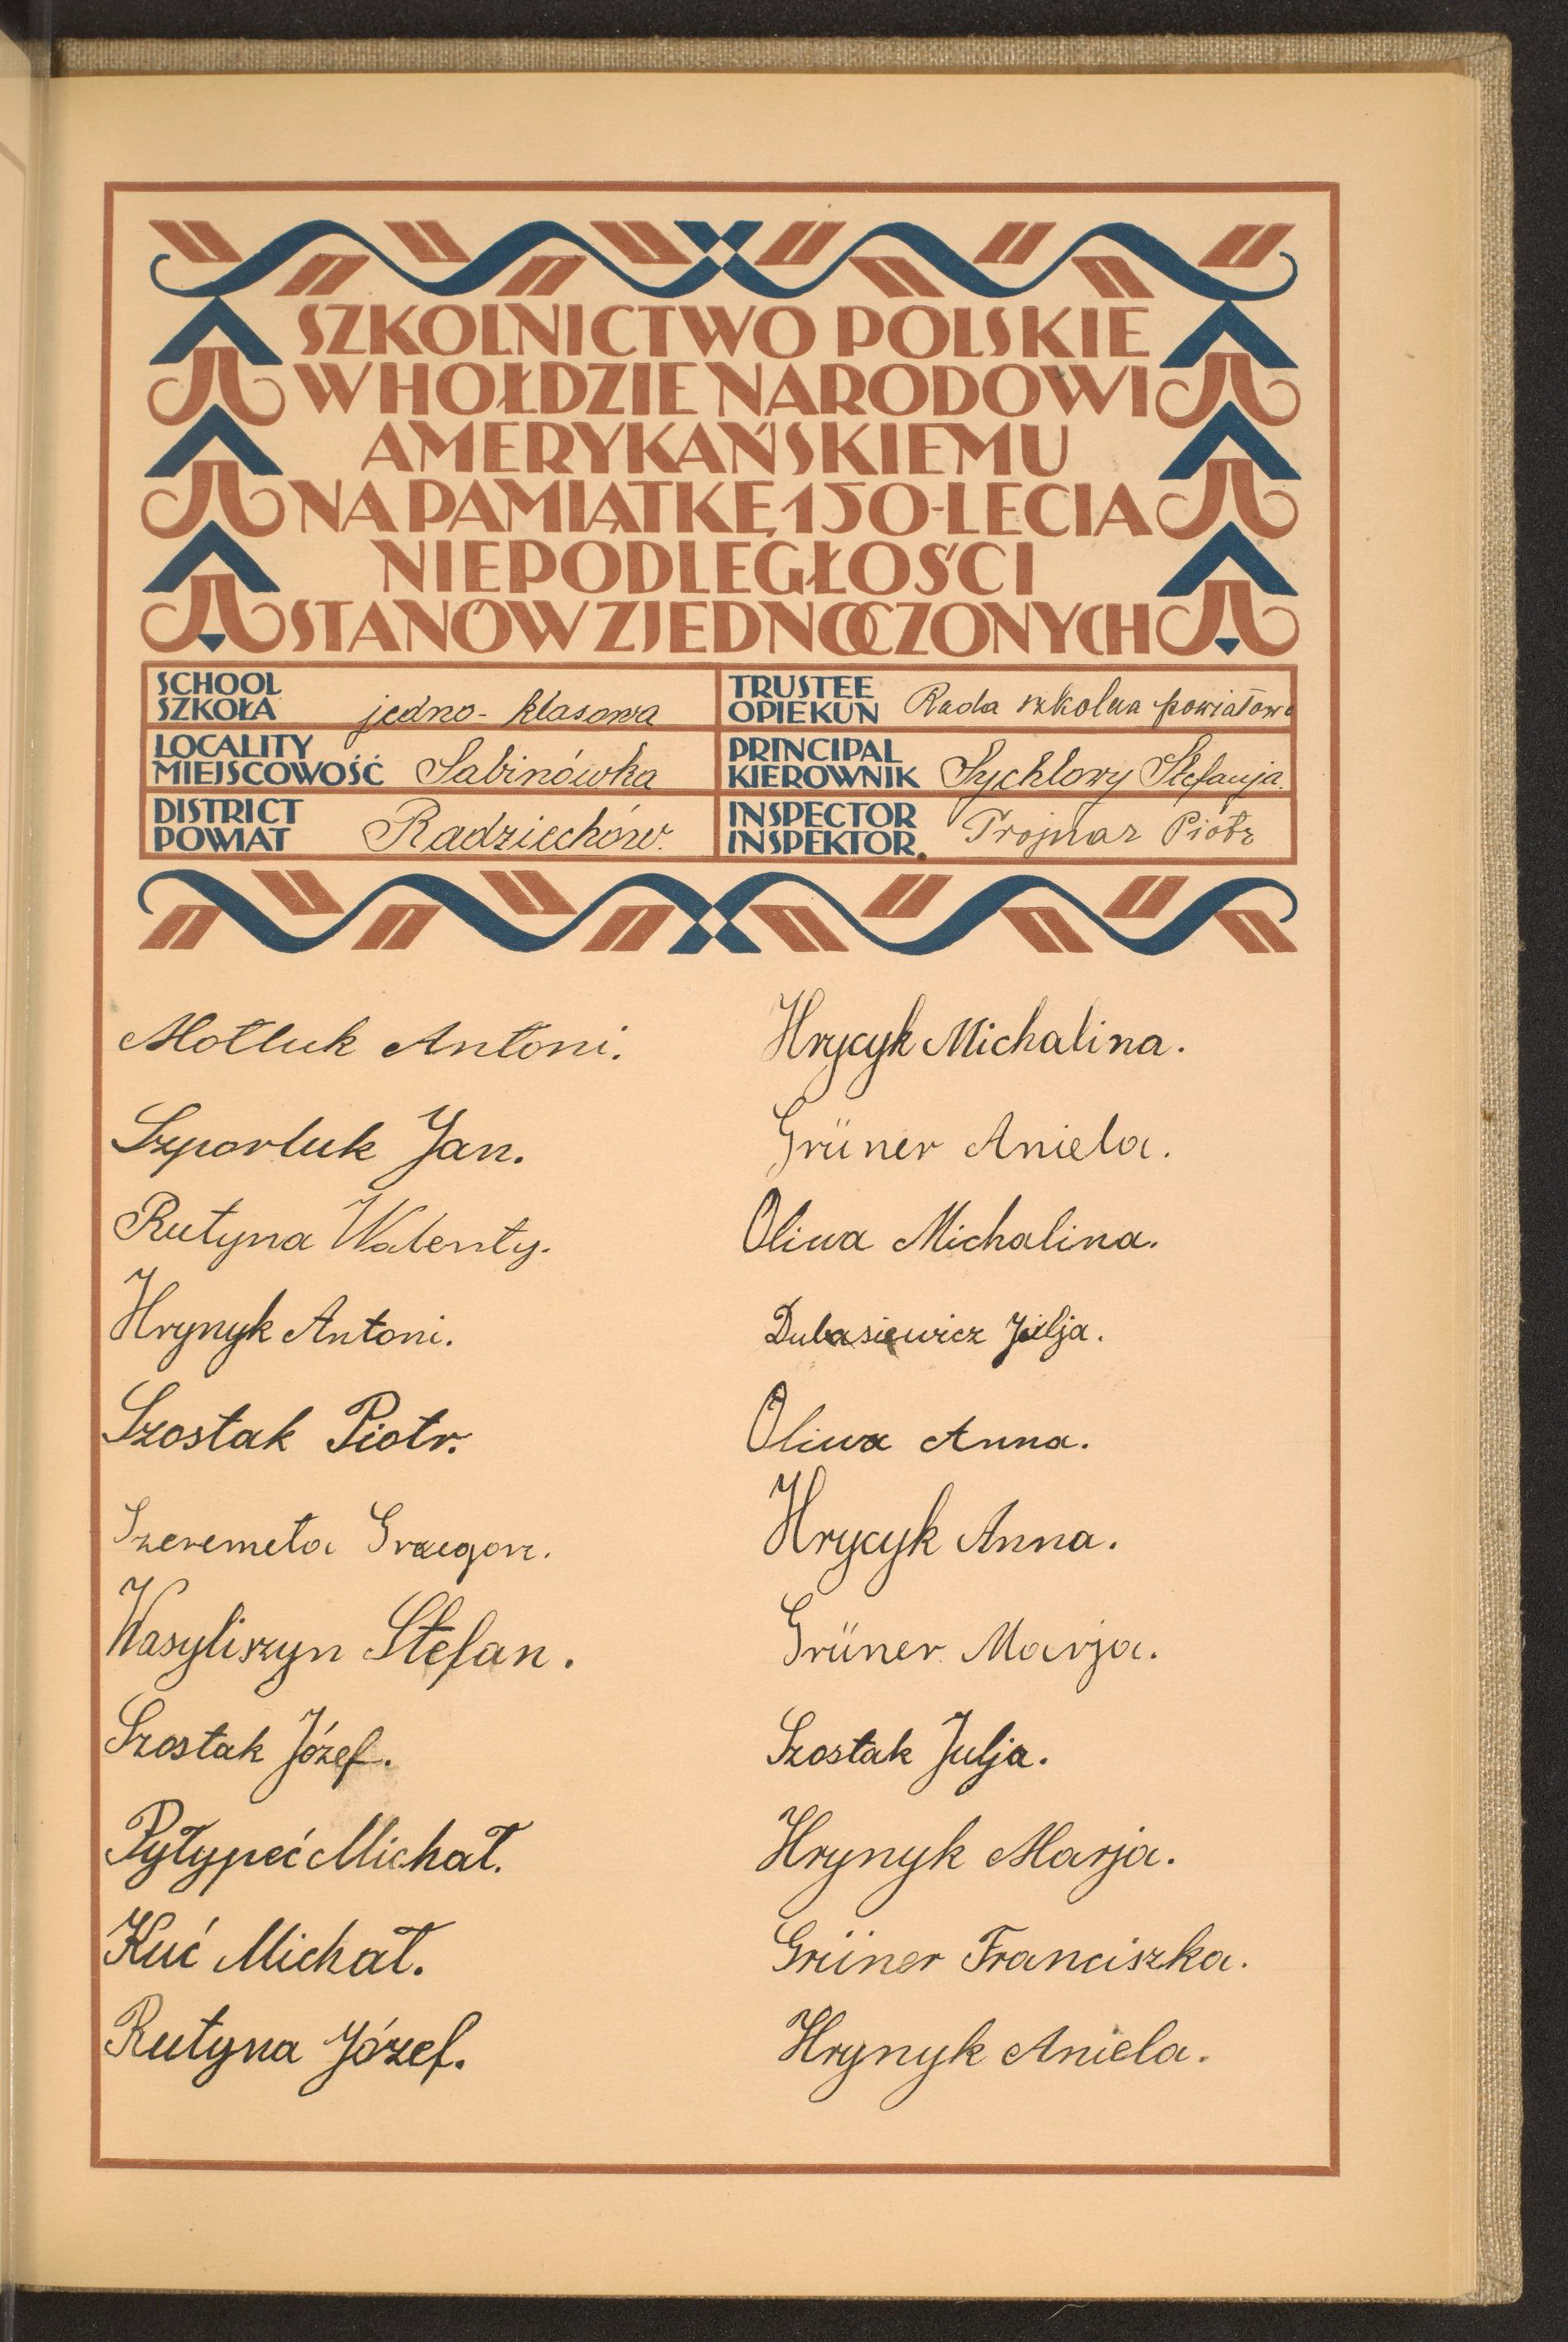 SZKOLNICTWO POLSKIE
W HOŁDZIE NARODOWI
AMERYKAŃSKIEMU
NA PAMIĄTKĘ 150-LECIA
NIEPODLEGŁOŚCI
STANÓW ZJEDNOCZONYCH
SCHOOL
SZKOŁA jedno-klasowa
LOCALITY
MIEJSCOWOŚĆ Sabinówka
DISTRICT
POWIAT Radziechów.
TRUSTEE
OPIEKUN Rada szkolna powiatowa
PRINCIPAL
KIEROWNIK Sychlowy Stefanja.
INSPECTOR
INSPEKTOR Trojnar Piotr
Motluk Antoni.
Szporluk Jan.
Rutyna Walenty.
Hrynyk Antoni.
Szostak Piotr.
Szeremeta Grzegorz.
Wasyliszyn Stefan.
Szostak Józef.
Pyłypeć Michał.
Kuć Michał.
Rutyna Józef.
Hrycyk Michalina.
Grüner Aniela.
Oliwa Michalina.
Dubasiewicz Julja.
Oliwa Anna.
Hrycyk Anna.
Grüner Marja.
Szostak Julja.
Hrynyk Marja.
Grüner Franciszka.
Hrynyk Aniela.